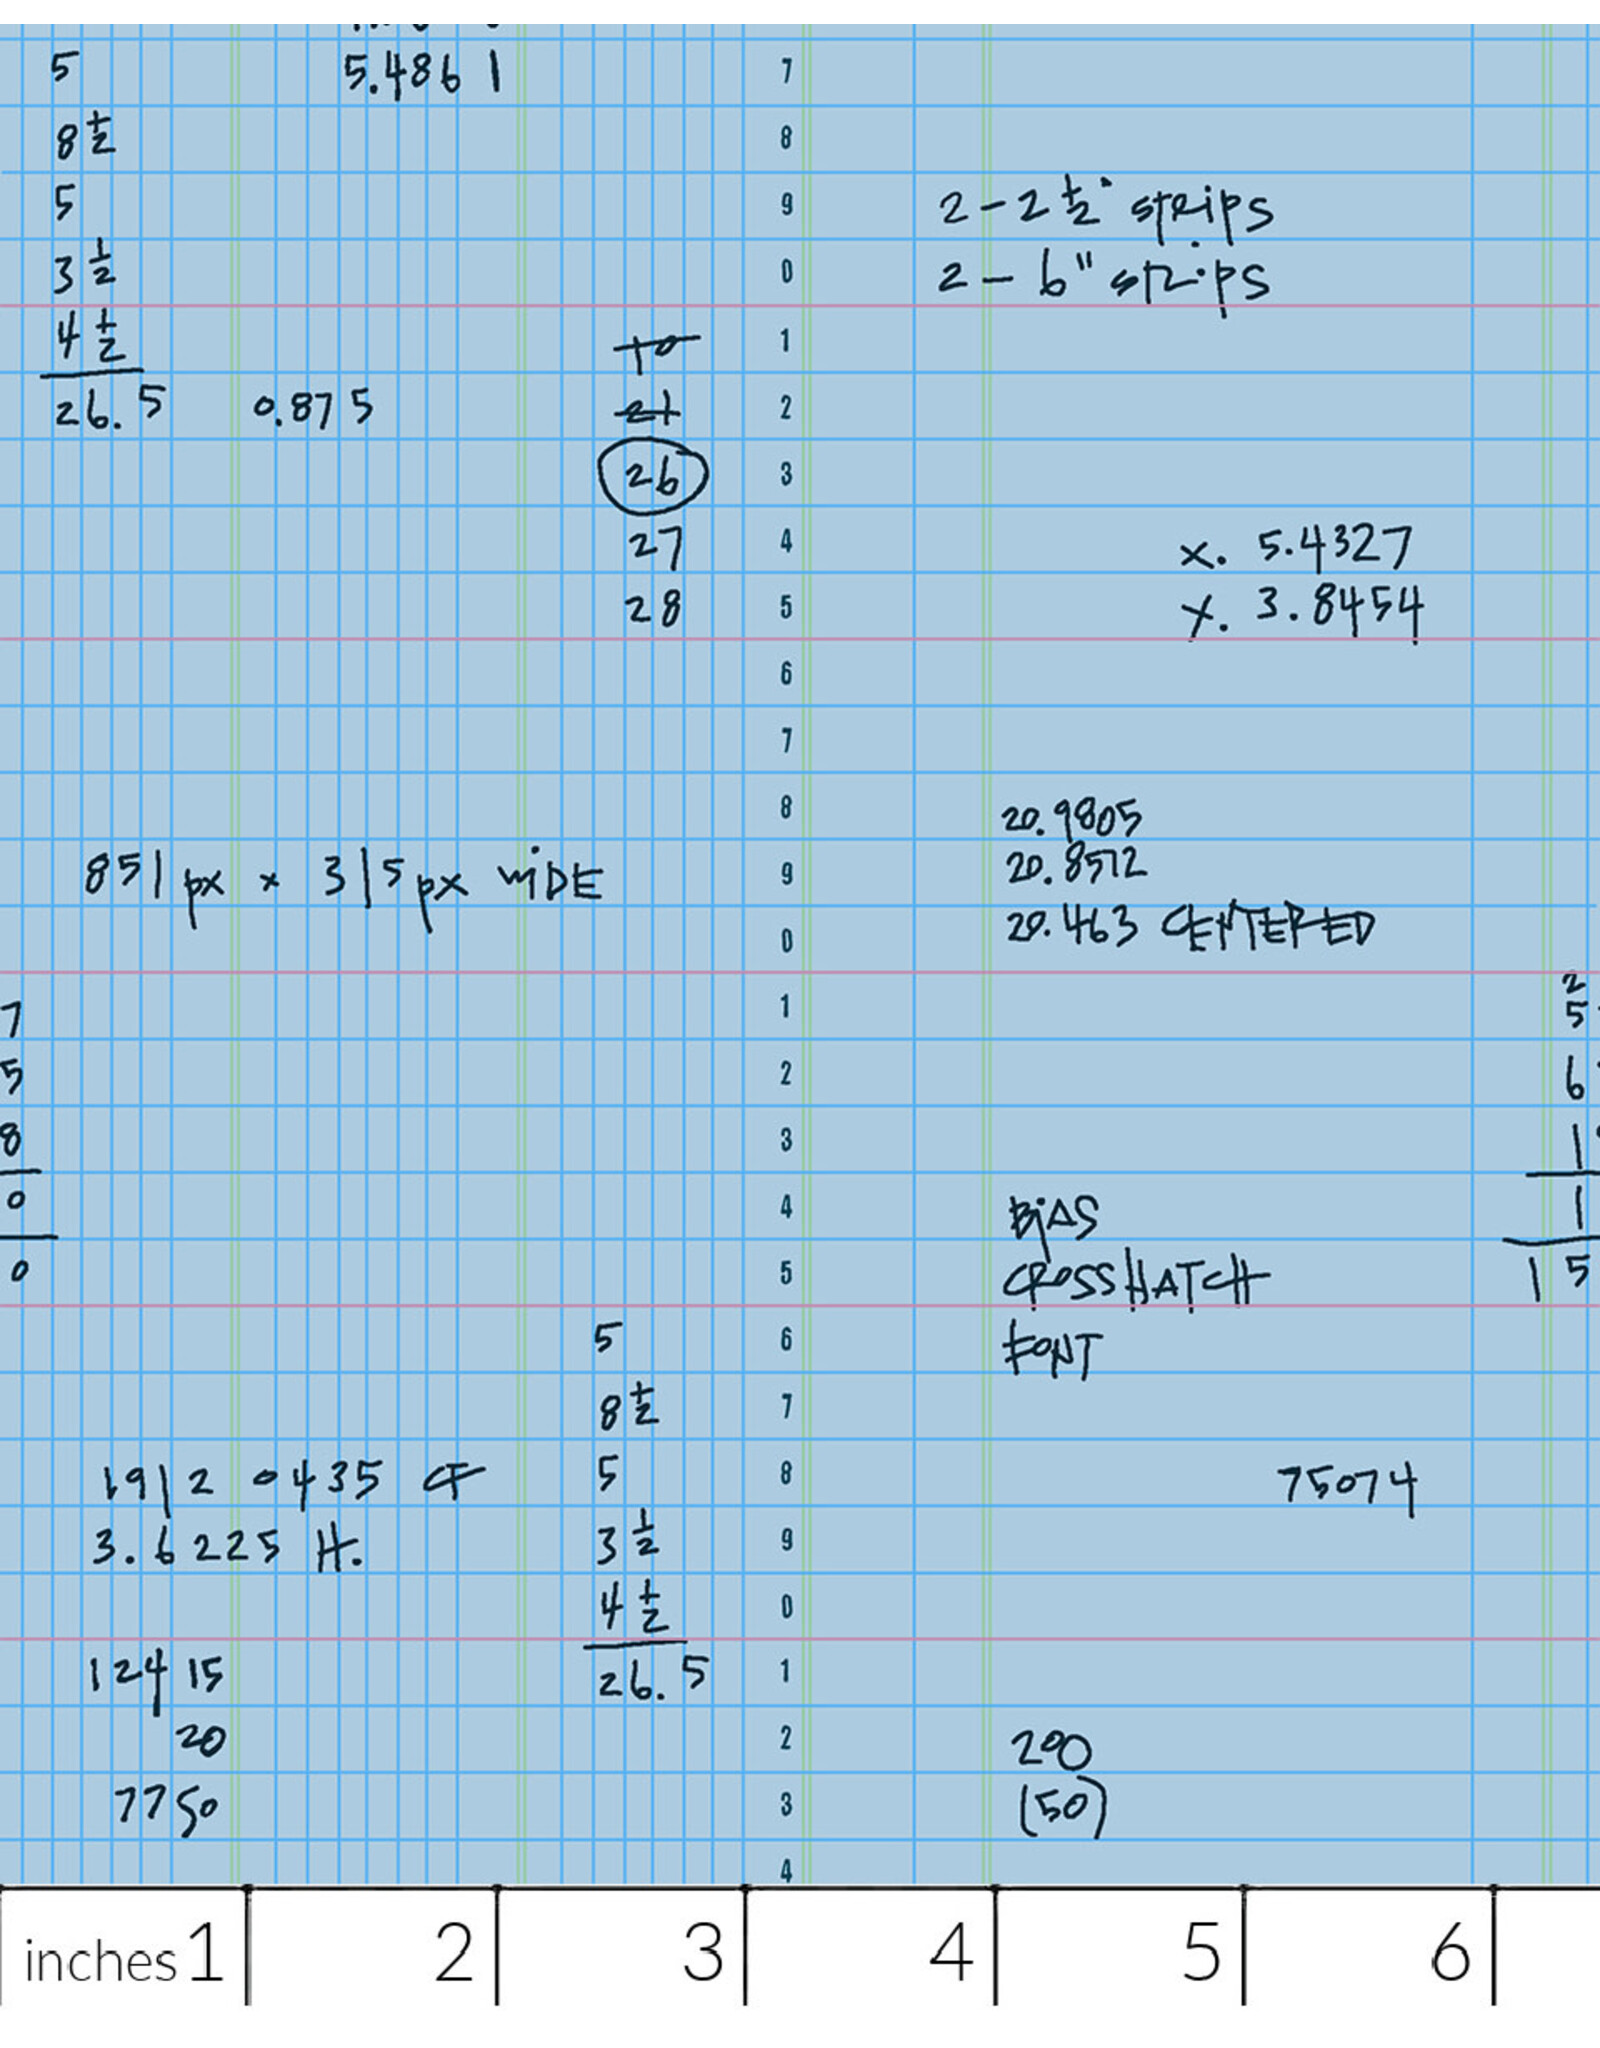 5
5.4861
8 1/2
5
3 1/2
4 1/2
26.5
0.875
10
21
26
27
28
7
8
9
0
1
2
3
4
5
6
7
8
9
0
1
2
3
4
5
6
7
8
9
0
1
2
3
4
2 - 2 1/2" strips
2 - 6" strips
x. 5.4327
y. 3.8454
851 px x 315 px WiDE
20.9805
20.8572
20.463 CENTERED
7
5
8
0
0
2
5
6
1
1
15
BiAS
CROSSHATCH
FONT
5
8 1/2
5
3 1/2
4 1/2
26.5
1912 0435
3.6225 H.
75074
124 15
20
7750
200
(50)
inches 1 2 3 4 5 6